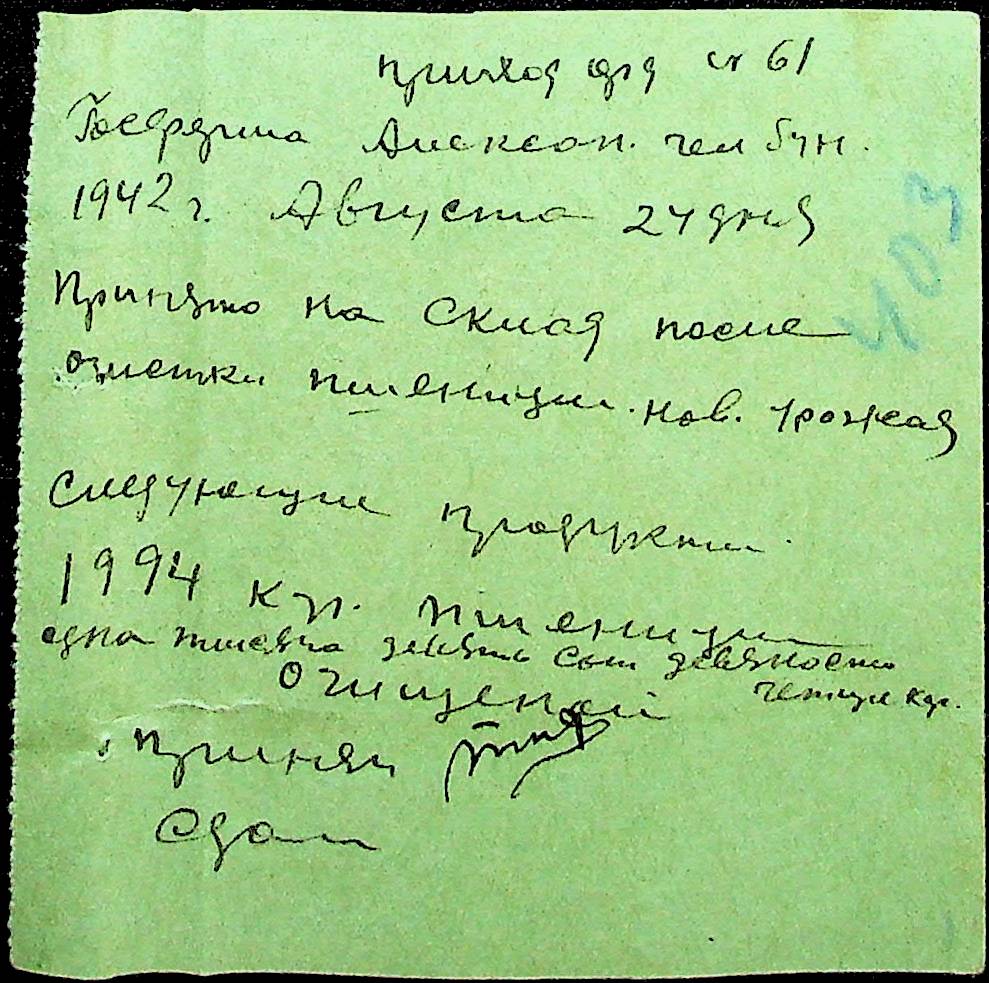 приход орд № 61
Госферма Алексан. чел бун.
1942 г. Августа 24 дня
403
Принято на склад после
очистки пшеницы. нов. урожая
Следующие продукты
1994 кгр. пшеницы
одна тысяча девять сот девяносто
четыре кгр.
Очищеной
Принял
Сдал